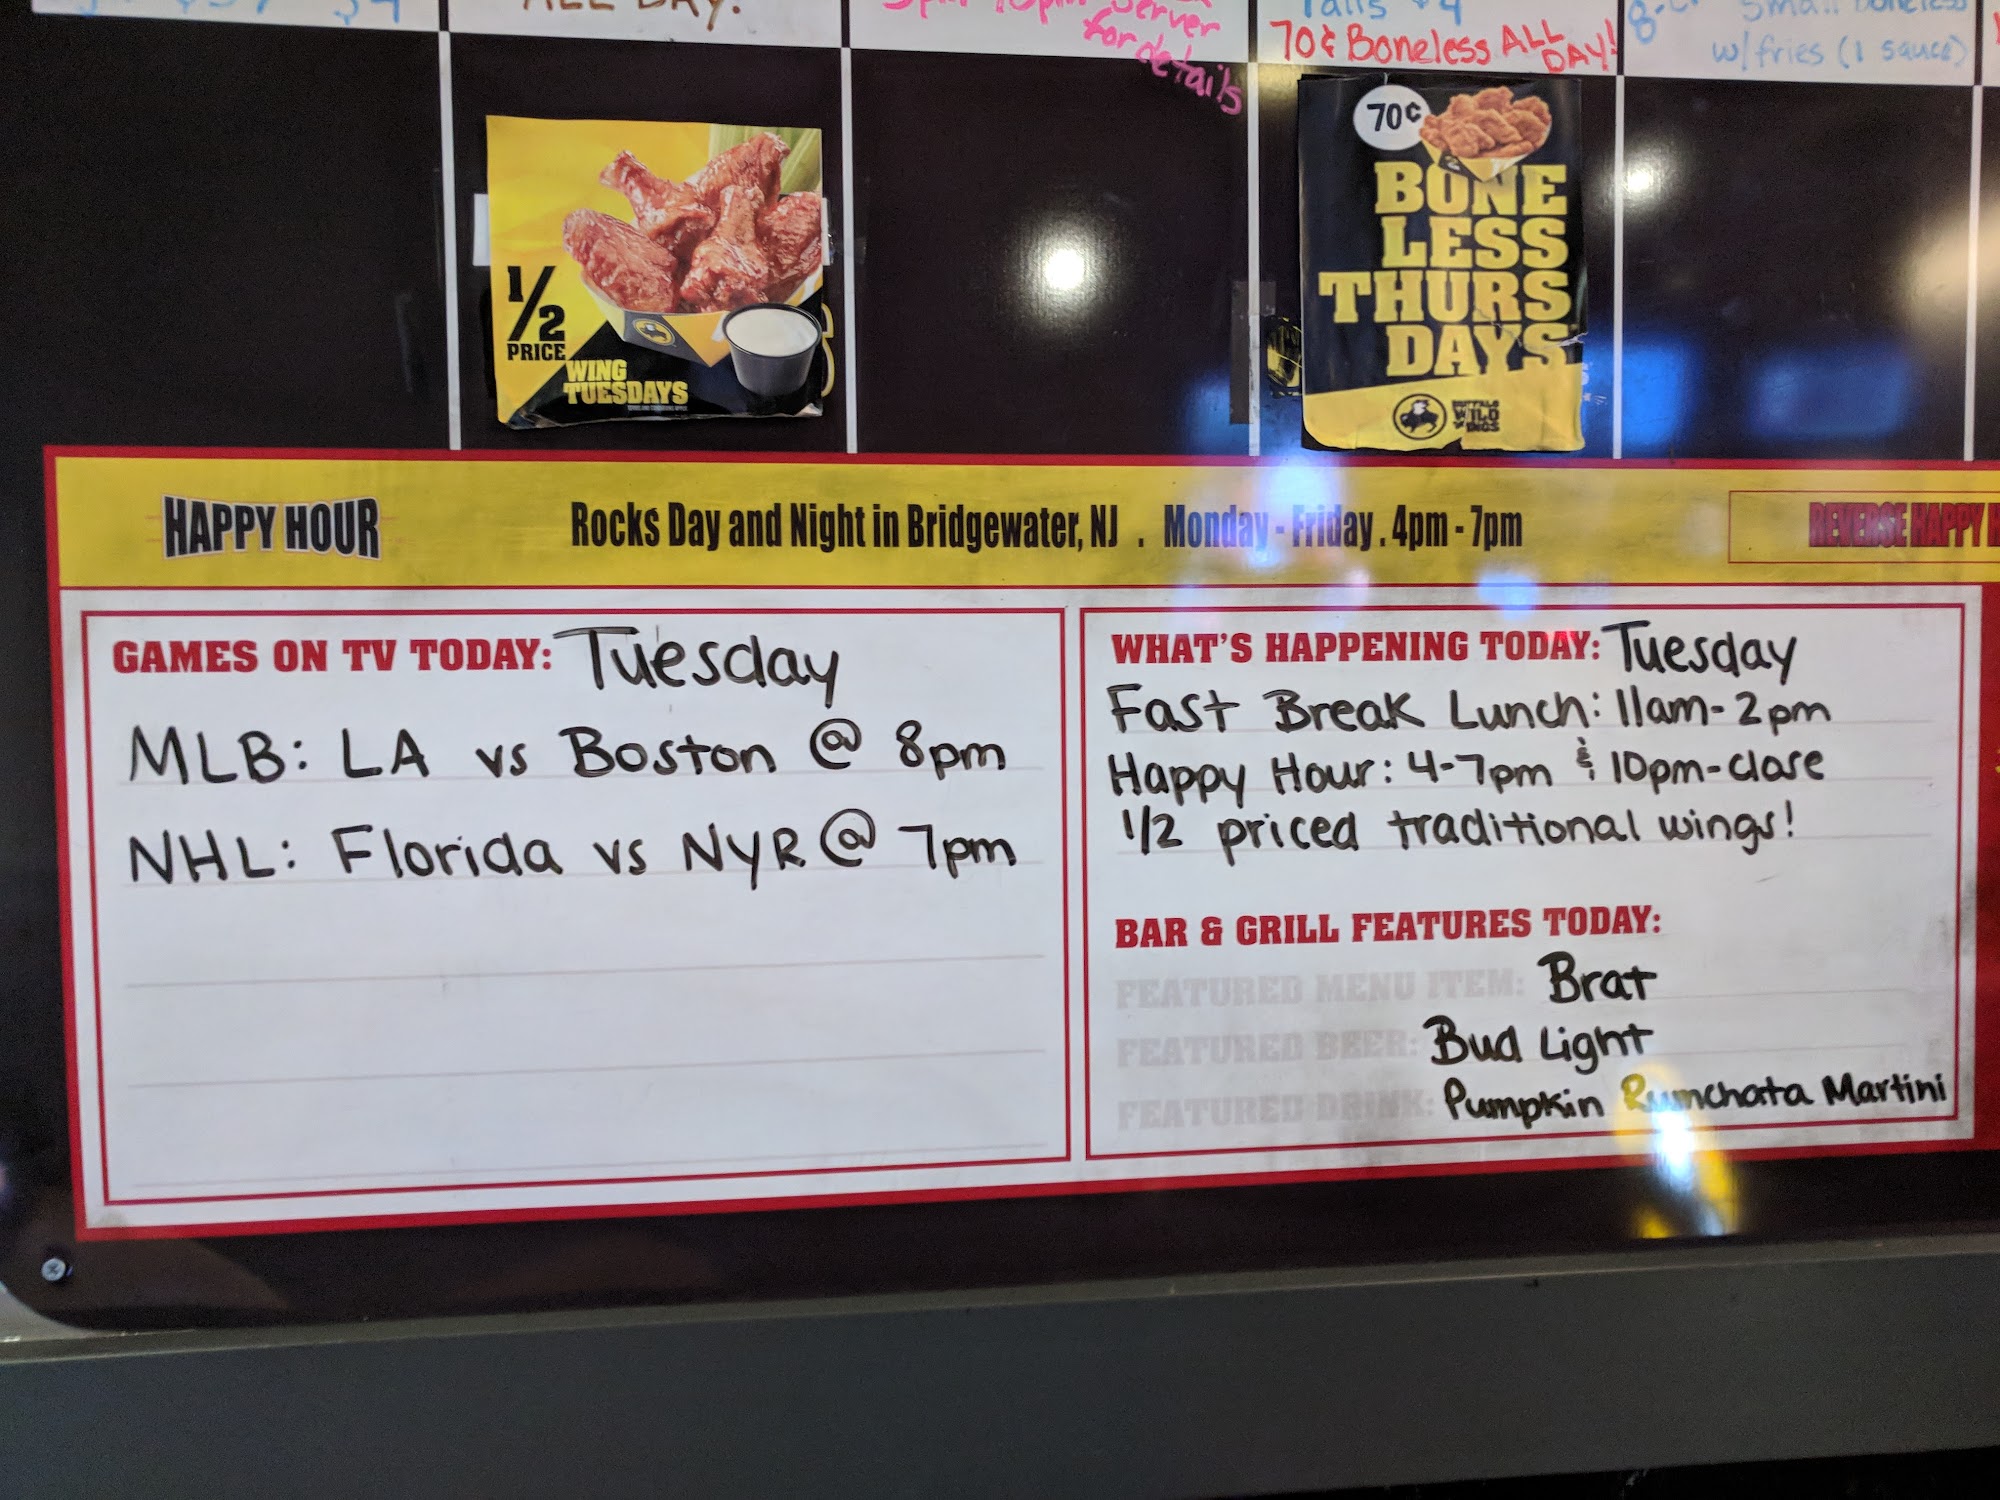 ALL DAY!
server
for details
Talls $4
70¢ Boneless ALL DAY!
small boneless
w/fries (1 sauce)
1/2
PRICE
WING
TUESDAYS
70¢
BONE
LESS
THURS
DAYS
BUFFALO
WILD
WINGS
HAPPY HOUR
Rocks Day and Night in Bridgewater, NJ . Monday - Friday . 4pm - 7pm
REVERSE HAPPY
GAMES ON TV TODAY: Tuesday
MLB: LA vs Boston @ 8pm
NHL: Florida vs NYR @ 7pm
WHAT'S HAPPENING TODAY: Tuesday
Fast Break Lunch: 11am-2pm
Happy Hour: 4-7pm & 10pm-close
1/2 priced traditional wings!
BAR & GRILL FEATURES TODAY:
FEATURED MENU ITEM: Brat
FEATURED BEER: Bud Light
FEATURED DRINK: Pumpkin Rumchata Martini